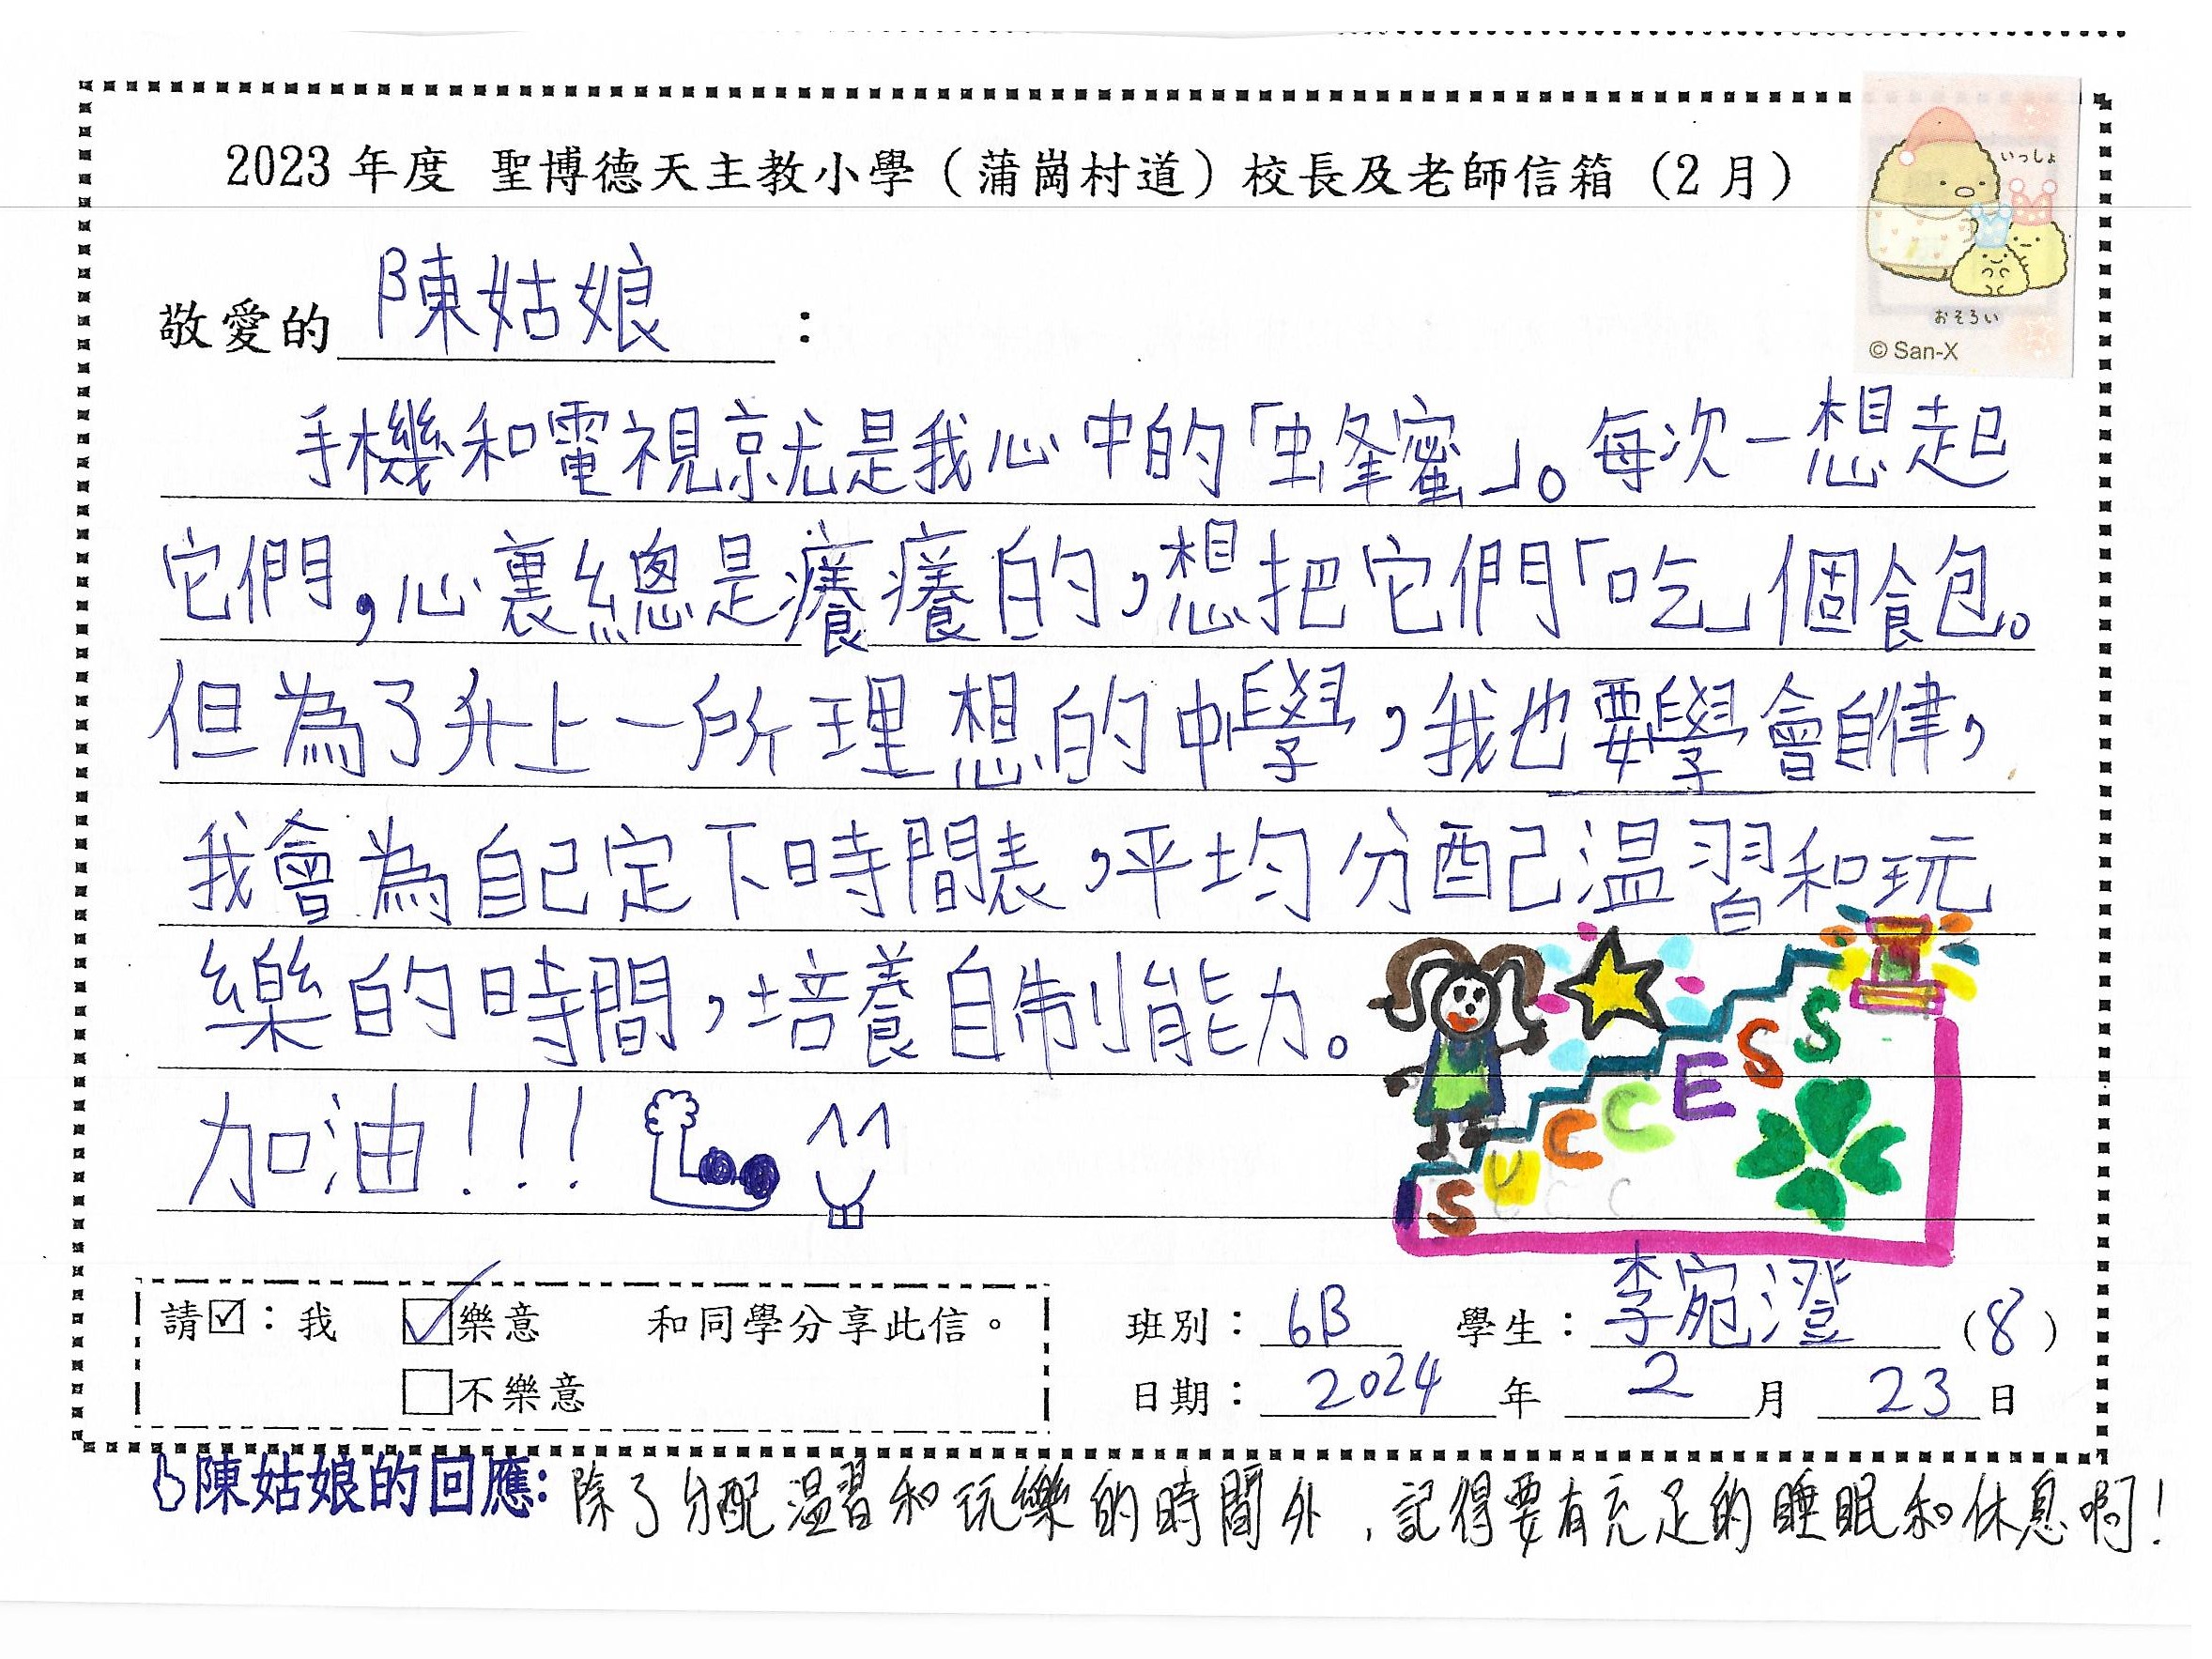 2023 年度 聖博德天主教小學（蒲崗村道）校長及老師信箱（2 月）
いっしょ
おそろい
© San-X
敬愛的 陳姑娘 ：
手機和電視就是我心中的「蜂蜜」。每次一想起
它們，心裏總是癢癢的，想把它們「吃」個飽。
但為了升上一所理想的中學，我也要學會自律，
我會為自己定下時間表，平均分配温習和玩
樂的時間，培養自制能力。
加油！！！
SUCCESS
請☑：我 ☑樂意 和同學分享此信。
☐不樂意
班別： 6B 學生： 李宛澄 （8）
日期： 2024 年 2 月 23 日
陳姑娘的回應：除了分配温習和玩樂的時間外，記得要有充足的睡眠和休息啊！